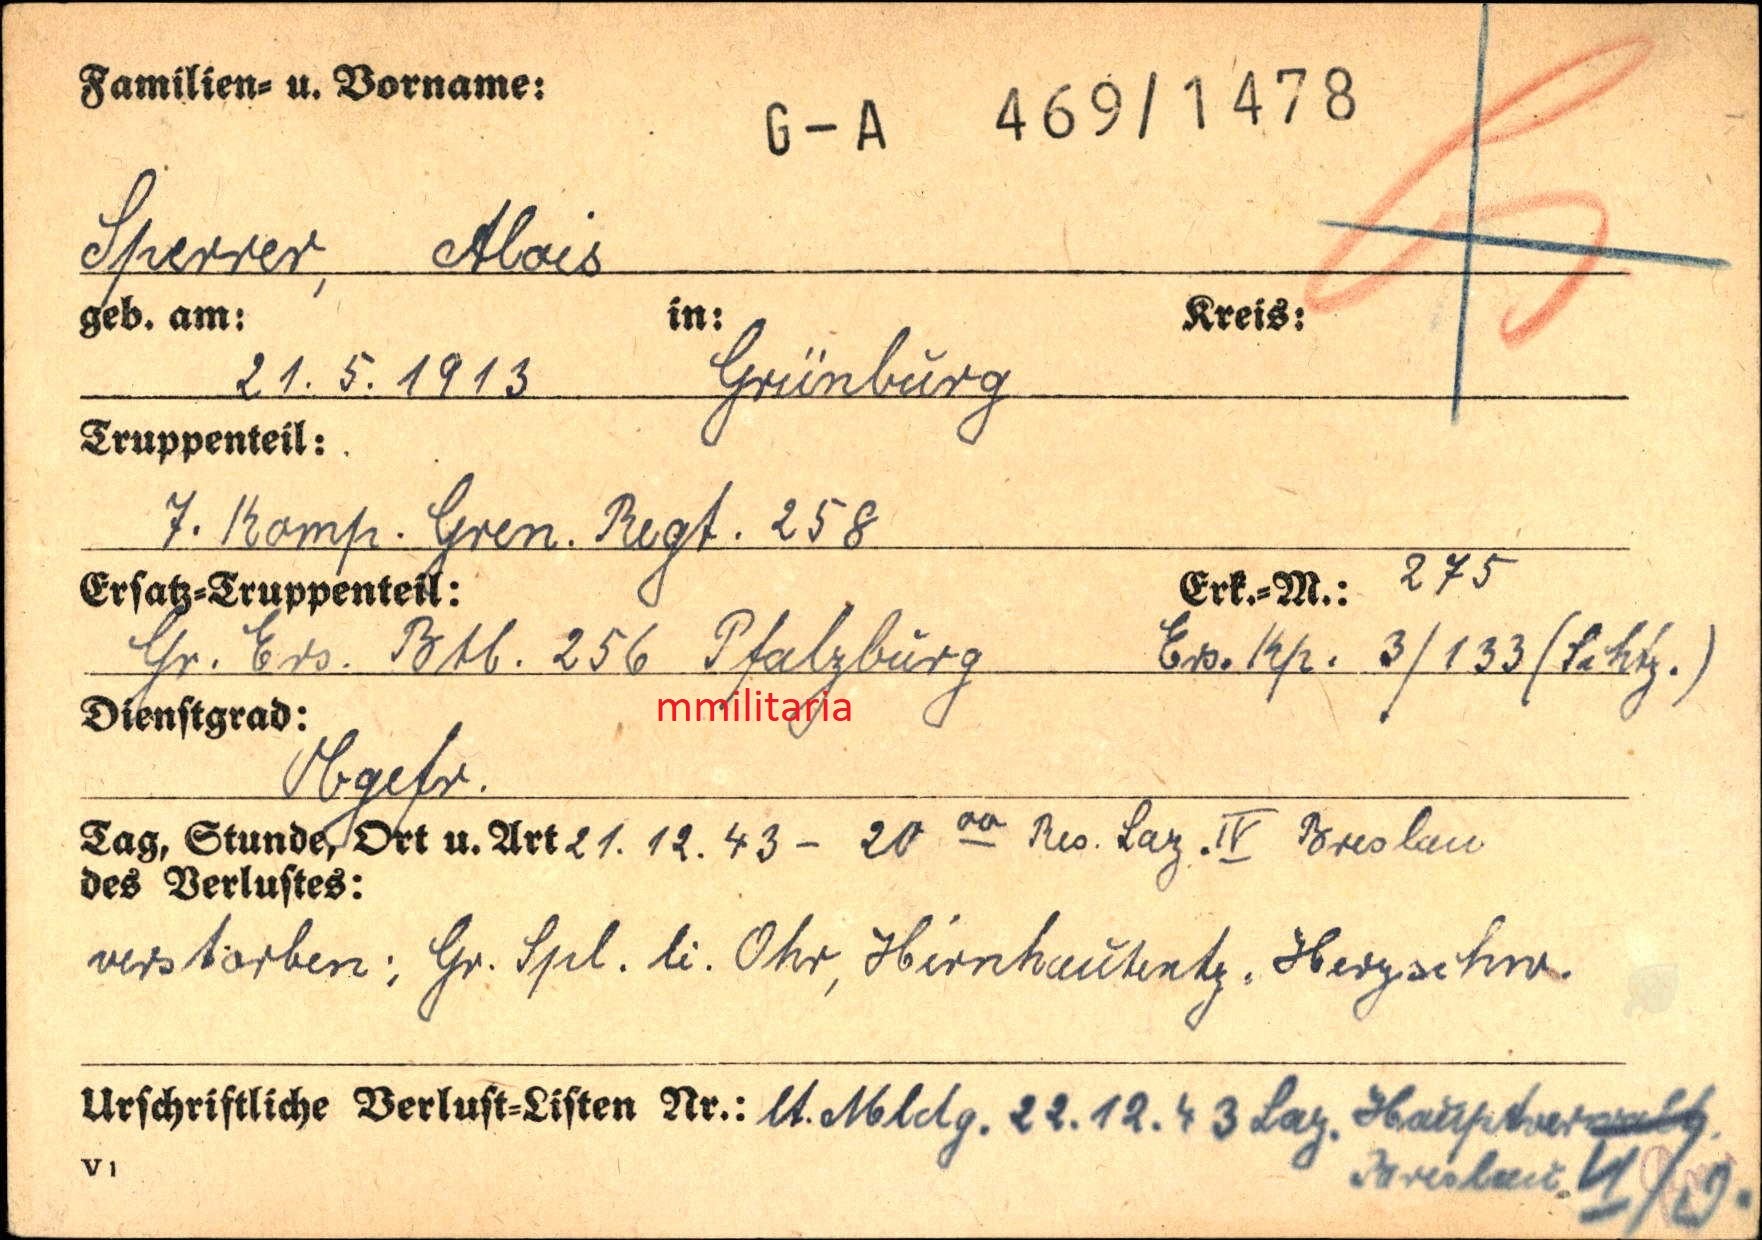 Familien- u. Vorname:
G-A 469/1478
Sperrer, Alois
geb. am: in: Kreis:
21. 5. 1913 Grünburg
Truppenteil:
7. Komp. Gren. Regt. 258
Ersatz-Truppenteil: Erk.-M.: 275
Gr. Ers. Btl. 256 Pfalzburg Ers. Kp. 3/133 (Schtz.)
mmilitaria
Dienstgrad:
Obgefr.
Tag, Stunde, Ort u. Art 21. 12. 43 - 20 00 Res. Laz. IV Breslau
des Verlustes:
verstorben; Gr. Spl. li. Ohr, Hirnhautentz. Herzschw.
Urschriftliche Verlust-Listen Nr.: lt. Mldg. 22.12.43 Laz. Hauptverwaltg.
V1
Breslau